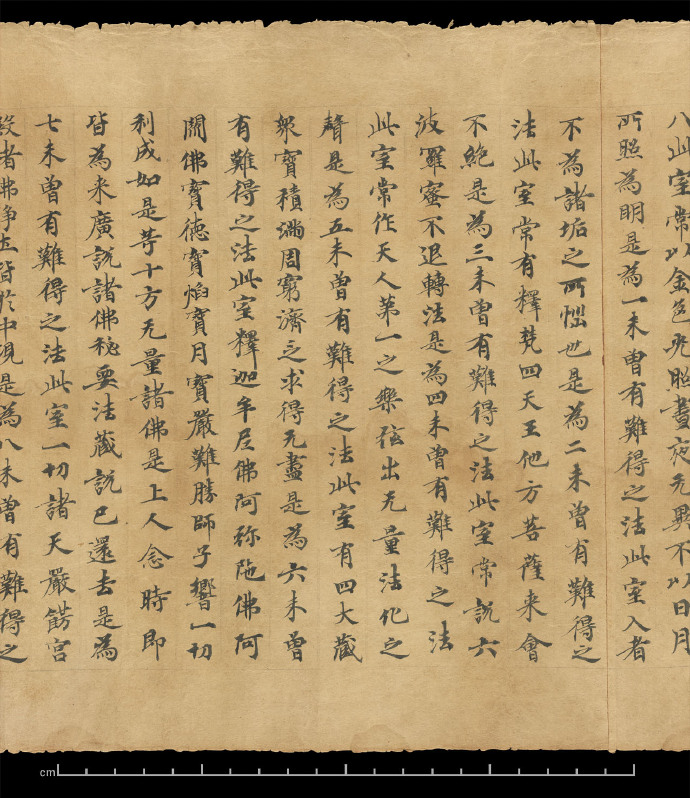 八此室常以金色光照晝夜无異不以日月
所照為明是為一未曾有難得之法此室入者
不為諸垢之所惱也是為二未曾有難得之
法此室常有釋梵四天王他方菩薩来會
不絶是為三未曾有難得之法此室常說六
波羅蜜不退轉法是為四未曾有難得之法
此室常作天人第一之樂弦出无量法化之
聲是為五未曾有難得之法此室有四大藏
衆寶積滿周窮濟乏求得无盡是為六未曾
有難得之法此室釋迦牟尼佛阿弥陁佛阿
閦佛寶德寶焰寶月寶嚴難勝師子響一切
利成如是等十方无量諸佛是上人念時即
皆為来廣說諸佛秘要法藏說已還去是為
七未曾有難得之法此室一切諸天嚴餝宮
殿諸佛淨土皆於中現是為八未曾有難得之